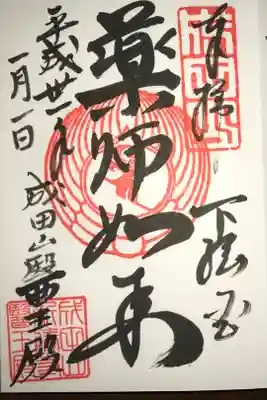 奉拝
下総国
薬師如来
平成卅一年
一月一日
成田山醫王殿